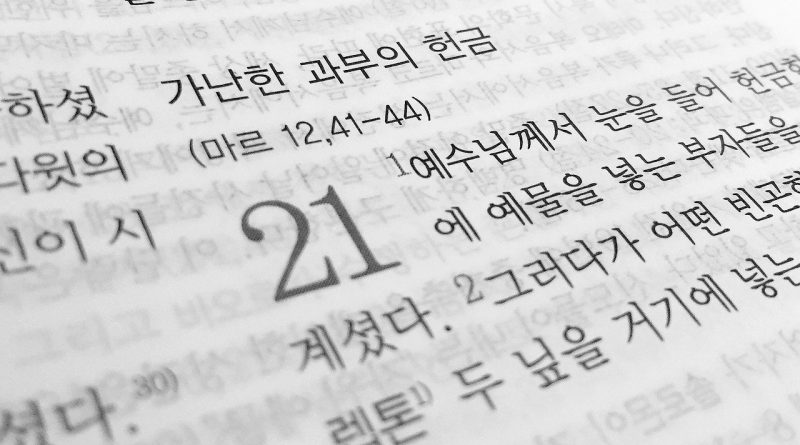 하셨
다윗의
신이 시
셨다.30)
가난한 과부의 헌금
(마르 12,41-44)
21
1예수님께서 눈을 들어 헌금
에 예물을 넣는 부자들을
계셨다. 2그러다가 어떤 빈곤
렙톤1) 두 닢을 거기에 넣는